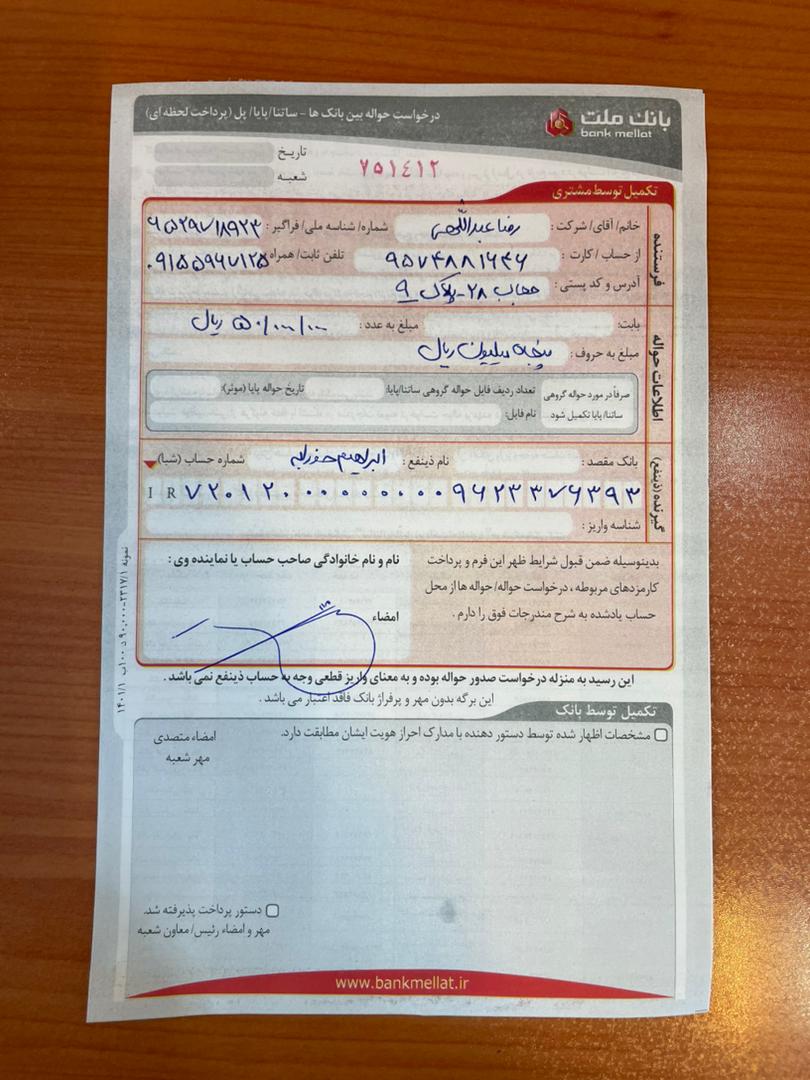 بانک ملت
bank mellat
درخواست حواله بین بانک ها - ساتنا/پایا/پل (پرداخت لحظه ای)
تاریخ
۷۵۱٤۱۲
شعبه
تکمیل توسط مشتری
فرستنده
خانم/آقای/شرکت: رضا عبداللهی شماره/شناسه ملی/فراگیر: ۶۵۲۹۷۱۸۹۲۳
از حساب/کارت: ۹۵۷۴۸۸۱۶۴۶ تلفن ثابت/همراه ۰۹۱۵۵۹۶۷۱۲۵
آدرس و کد پستی: مهاب ۲۸-پلاک ۹
اطلاعات حواله
بابت: مبلغ به عدد: ۵۰/۰۰۰/۰۰۰ ریال
مبلغ به حروف: پنجاه میلیون ریال
صرفاً در مورد حواله گروهی ساتنا/پایا تکمیل شود
تعداد ردیف فایل حواله گروهی ساتنا/پایا: تاریخ حواله پایا (موثر):
نام فایل:
گیرنده (ذینفع)
بانک مقصد: نام ذینفع: ابراهیم شماره حساب (شبا)
IR۷۲۰۱۲۰۰۰۰۰۰۰۰۰۹۶۲۳۳۷۶۳۹۳
شناسه واریز:
بدینوسیله ضمن قبول شرایط ظهر این فرم و پرداخت
کارمزدهای مربوطه، درخواست حواله/حواله ها از محل
حساب یادشده به شرح مندرجات فوق را دارم.
نام و نام خانوادگی صاحب حساب یا نماینده وی:
امضاء
این رسید به منزله درخواست صدور حواله بوده و به معنای واریز قطعی وجه به حساب ذینفع نمی باشد.
این برگه بدون مهر و پرفراژ بانک فاقد اعتبار می باشد.
تکمیل توسط بانک
مشخصات اظهار شده توسط دستور دهنده با مدارک احراز هویت ایشان مطابقت دارد.
امضاء متصدی
مهر شعبه
دستور پرداخت پذیرفته شد.
مهر و امضاء رئیس/معاون شعبه
www.bankmellat.ir
نمونه ۲۳۱۷/۱-۹۰،۰۰۰ د ۱۰۰ب ۱۴۰۱/۱